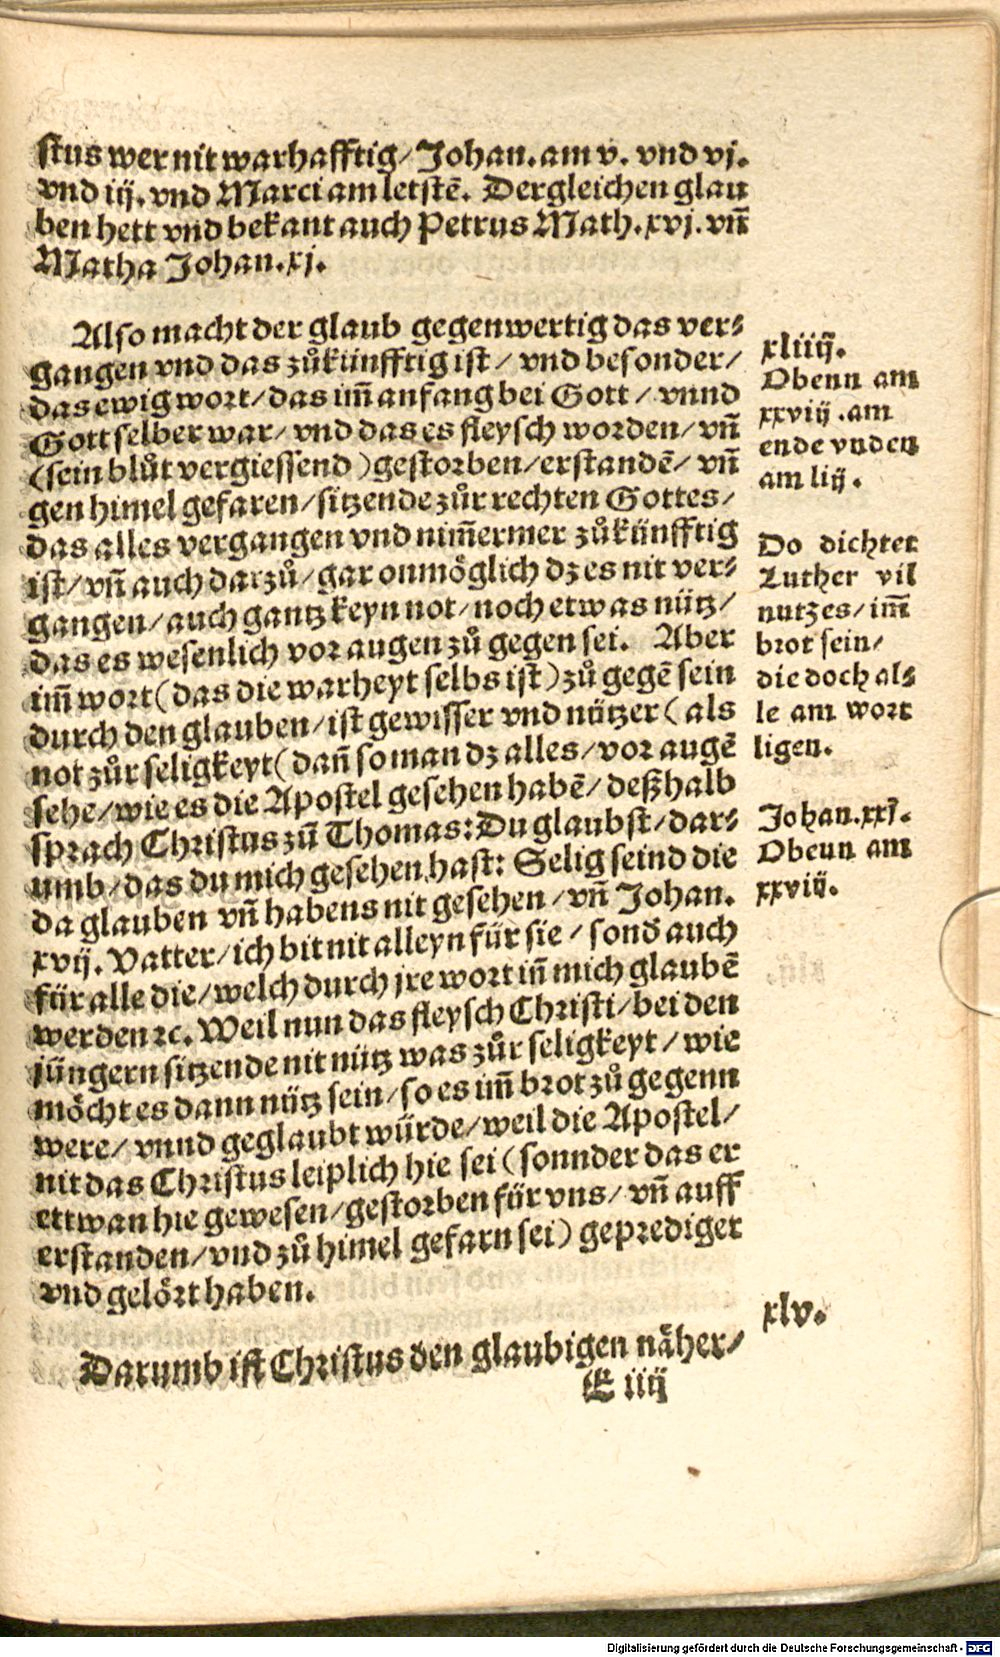 stus wer nit warhafftig/ Johan. am v. vnd vj.
vnd iij. vnd Marci am letstē. Dergleichen glau
ben hett vnd bekant auch Petrus Math. xvj. vñ
Matha Johan. xj.
Also macht der glaub gegenwertig das ver⸗
gangen vnd das zůkünfftig ist/ vnd besonder/
das ewig wort/ das im̄ anfang bei Gott/ vnnd
Gott selber war/ vnd das es fleysch worden/ vñ
(sein blůt vergiessend) gestorben/ erstandē/ vñ
gen himel gefaren/ sitzende zůr rechten Gottes/
das alles vergangen vnd nim̄ermer zůkünfftig
ist/ vñ auch darzů/ gar onmöglich dz es nit ver⸗
gangen/ auch gantz keyn not/ noch etwas nütz/
das es wesenlich vor augen zů gegen sei. Aber
im̄ wort (das die warheyt selbs ist) zů gegē sein
durch den glauben/ ist gewisser vnd nützer (als
not zůr seligkeyt (dañ so man dz alles/ vor augē
sehe/ wie es die Apostel gesehen habē/ deßhalb
sprach Christus zů Thomas: Du glaubst/ dar⸗
umb/ das du mich gesehen hast: Selig seind die
da glauben vñ habens nit gesehen/ vñ Johan.
xvij. Vatter/ ich bit nit alleyn für sie/ sond auch
für alle die/ welch durch jre wort in̄ mich glaubē
werden ꝛc. Weil nun das fleysch Christi/ bei den
jüngern sitzende nit nütz was zůr seligkeyt/ wie
möcht es dann nütz sein/ so es im̄ brot zů gegenn
were/ vnnd geglaubt würde/ weil die Apostel/
nit das Christus leiplich hie sei (sonnder das er
ettwan hie gewesen/ gestorben für vns/ vñ auff
erstanden/ vnd zů himel gefarn sei) geprediget
vnd gelört haben.
Darumb ist Christus den glaubigen näher⸗
E iiij
xliiij.
Obenn am
xxviij. am
ende vnden
am liij.
Do dichtet
Luther vil
nutzes/ im̄
brot sein/
die doch al⸗
le am wort
ligen.
Johan. xxj.
Obenn am
xxviij.
xlv.
Digitalisierung gefördert durch die Deutsche Forschungsgemeinschaft - DFG